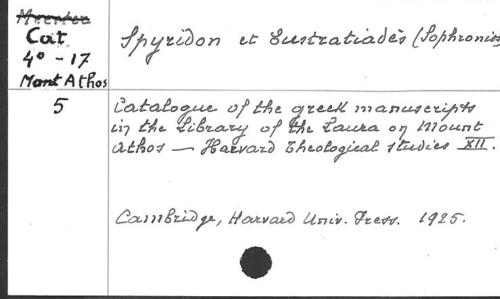 Cat.
4° - 17
Mont Athos
5
Spyridon et Eustratiadès (Sophronios
Catalogue of the greek manuscripts
in the Library of the Laura on Mount
Athos — Harvard Theological studies XII.
Cambridge, Harvard Univ. Press. 1925.